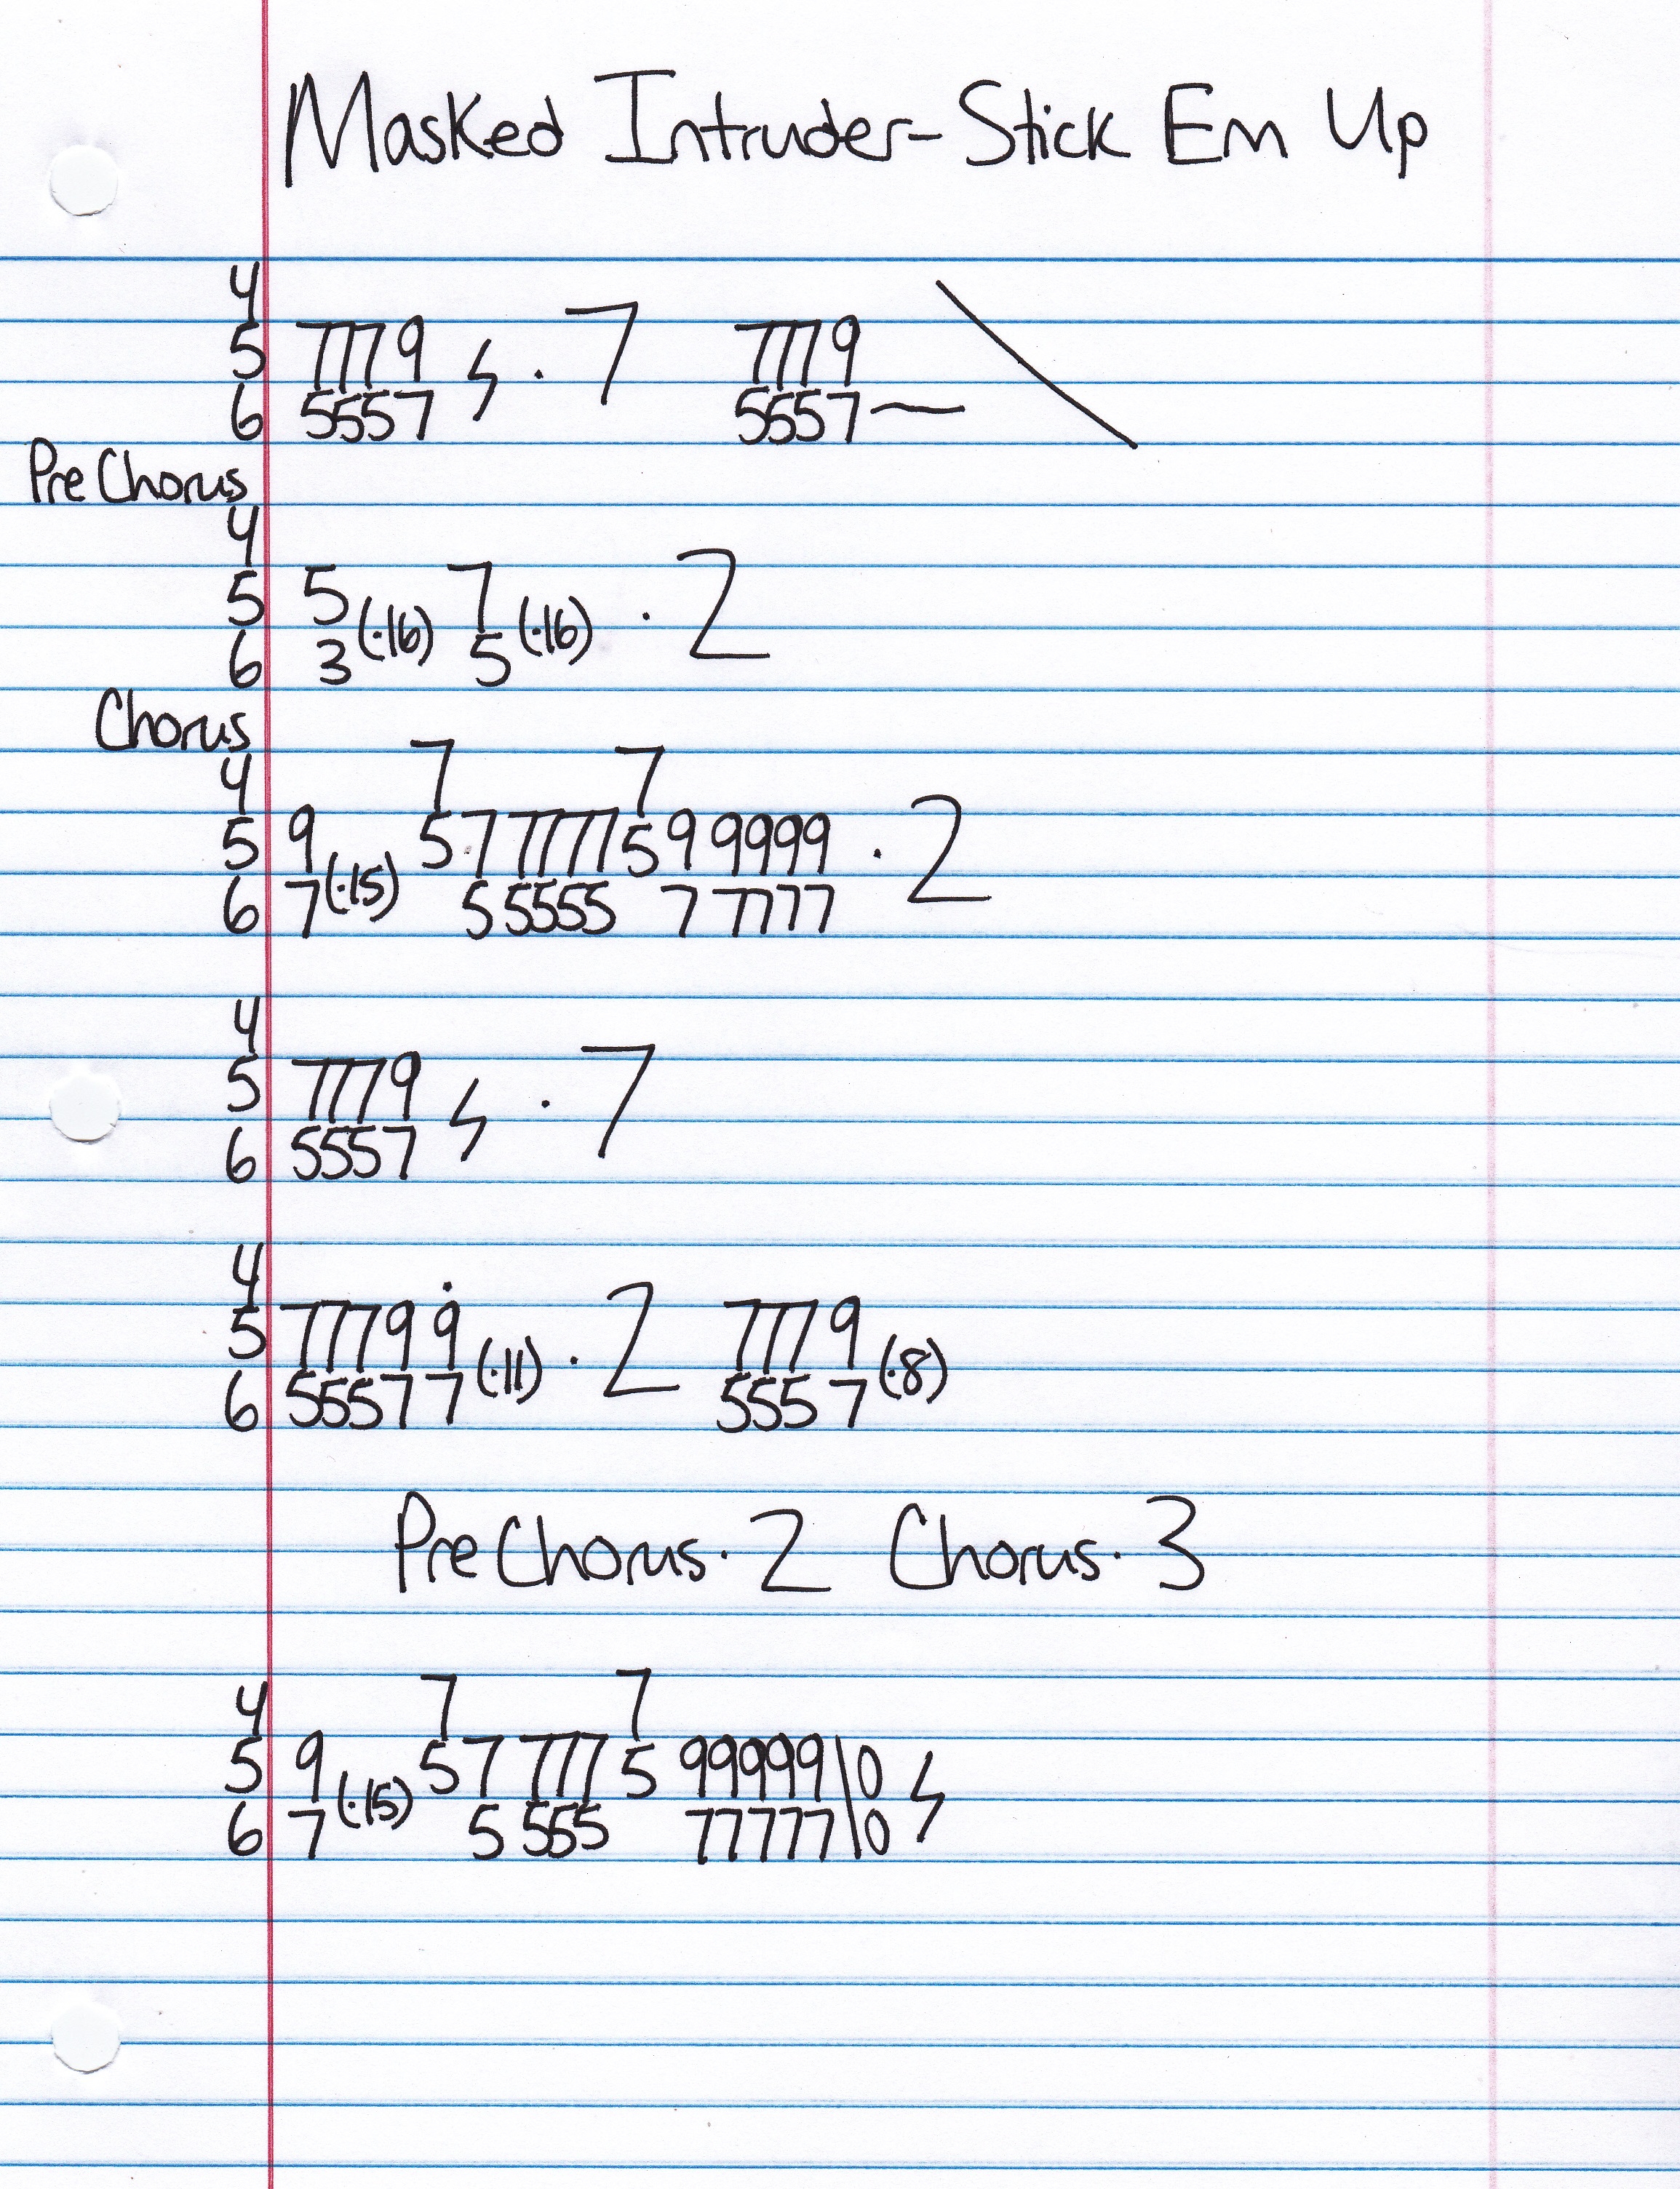 Masked Intruder-Stick Em Up
4
5 7779 ϟ · 7 7779
6 5557 5557—
Pre Chorus
4
5 5 (·16) 7 (·16) · 2
6 3 5
Chorus
4 7 7
5 9 (·15) 5 7 7777 5 9 9999 · 2
6 7 5 5555 7 7777
4
5 7779 ϟ · 7
6 5557
4
5 77799̇ (·11) · 2 7779 (·8)
6 55577 5557
Pre Chorus · 2 Chorus · 3
4 7 7
5 9 (·15) 57 777 5 99999\0 ϟ
6 7 5 555 77777\0